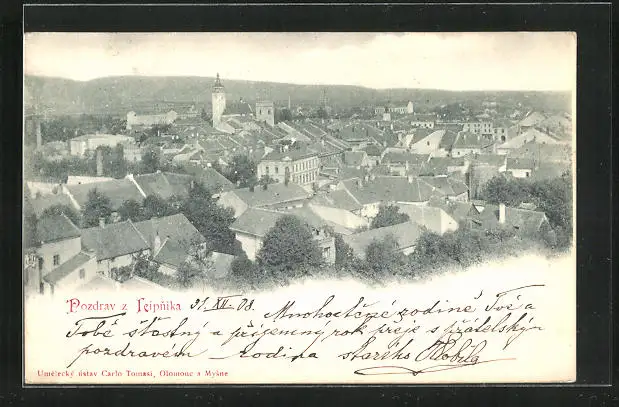 Pozdrav z Leipníka 31. XII - 03. Mnohoctěné rodině Tvé a
Tobě šťastný a příjemný rok přeje s přátelským
pozdravém rodina starého
Umělecký ústav Carlo Tomasi, Olomouc a Myšne